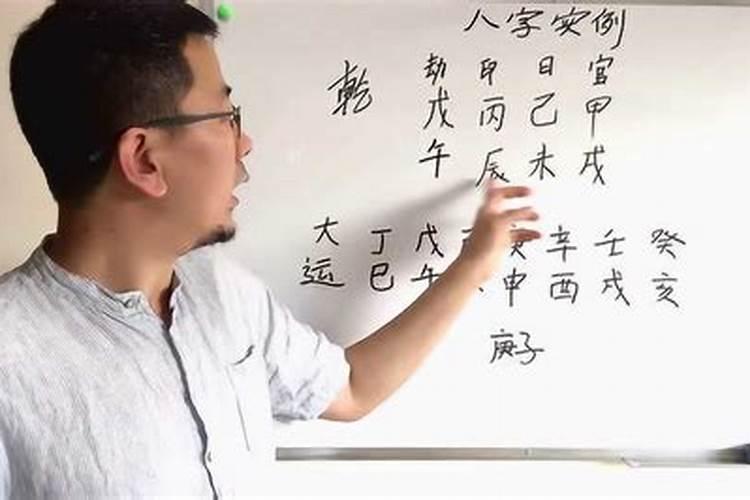 八字实例
劫 印 日 官
乾 戊 丙 己 甲
午 辰 未 戌
大 丁 戊 辛 壬 癸
运 巳 午 申 酉 戌 亥
庚子